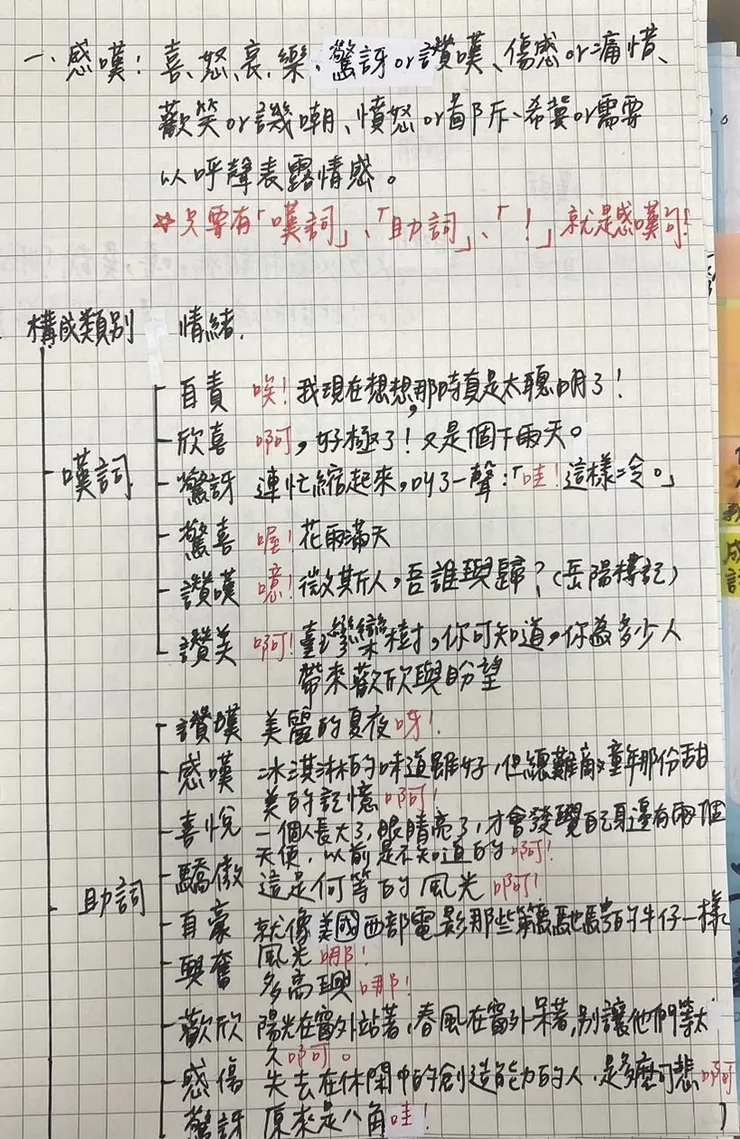 一、感嘆：喜、怒、哀、樂、驚訝or讚嘆、傷感or痛惜、
歡笑or譏嘲、憤怒or鄙斥、希冀or需要
以呼聲表露情感。
☆只要有「嘆詞」、「助詞」、「！」就是感嘆句!
構成類別 情緒.
嘆詞
自責 唉！我現在想想，那時真是太聰明了！
欣喜 啊，好極了！又是個下雨天。
驚訝 連忙縮起來，叫了一聲：「哇！這樣冷。」
驚喜 喔！花雨滿天
讚嘆 噫！微斯人，吾誰與歸？(岳陽樓記)
讚美 啊！臺灣欒樹，你可知道，你為多少人
帶來歡欣與盼望
助詞
讚嘆 美麗的夏夜呀！
感嘆 冰淇淋的味道雖好，但總難敵童年那份甜
美的記憶啊！
喜悅 一個人長大了，眼睛亮了，才會發覺自己身邊有兩個
天使，以前是不知道的啊！
驕傲 這是何等的風光啊！
自豪 就像美國西部電影那些馳騁的牛仔一樣
風光哪！
興奮 多高興哪！
歡欣 陽光在窗外站著，春風在窗外呆著，別讓他們等太
久啊。
感傷 失去在休閒中的創造能力的人，是多麼可悲啊
驚訝 原來是八角哇！